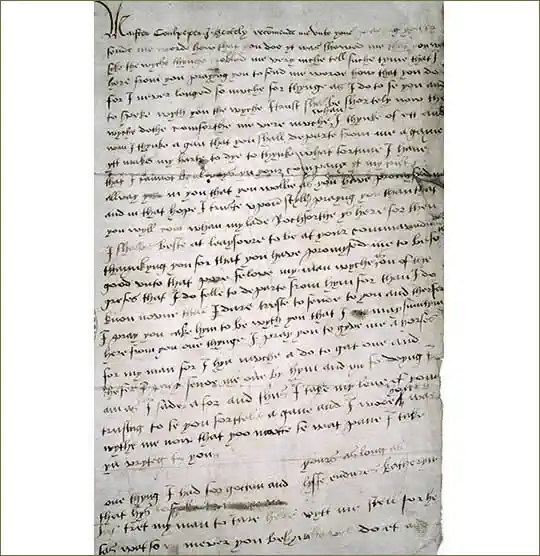 Master Coulpeper I hertely recomende me unto youe praying you to
sende me worde how that you doo yt was showed me that you was
sike the wyche thynge trobled me very muche tell suche tyme that I
here from you praying you to send me worde how that you do
for I never longed so muche for thynge as I do to se you and
to speke wyth you the wyche I trust shal be shortely now the
wyche dothe comforthe me verie muche whan I thynke of ett and
wan I thynke agan that you shall departe from me agane
ytt makes my harte to dye to thynke what fortune I have
that I cannot be always in your company yt my trust ys
allway in you that you wolbe as you have promysed me
and in that hope I truste upon styll praying you than that
you wyll com whan my lade Rochforthe ys here for then
I shalbe beste at leaysoure to be at your commarendmant
thaynkyng you for that you have promysed me to be so
good unto that pore felowe my man wyche on of the
grefes that I do felle to departe from hym for than I do
know noone that I dare truste to sende to you and therfor
I pray you take hym to be wyth you that I may sumtym
here from you one thynge I pray you to gyve me a horse
for my man for I hyd muche a do to gat one and
therfor I pray sende me one by hym and in so doyng I
am as I sade afor and thus I take my leve of you
trusting to se you shortele agane and I wode you was
wythe me now that yoo maitte se wat pane I take
in wryteg to you
yours as long as
lyffe endures Katheryn
one thyng I had forgotten and
that hys to
my man to tare here wytt me still for he
sas wat so mever you bed hym he wel do et and